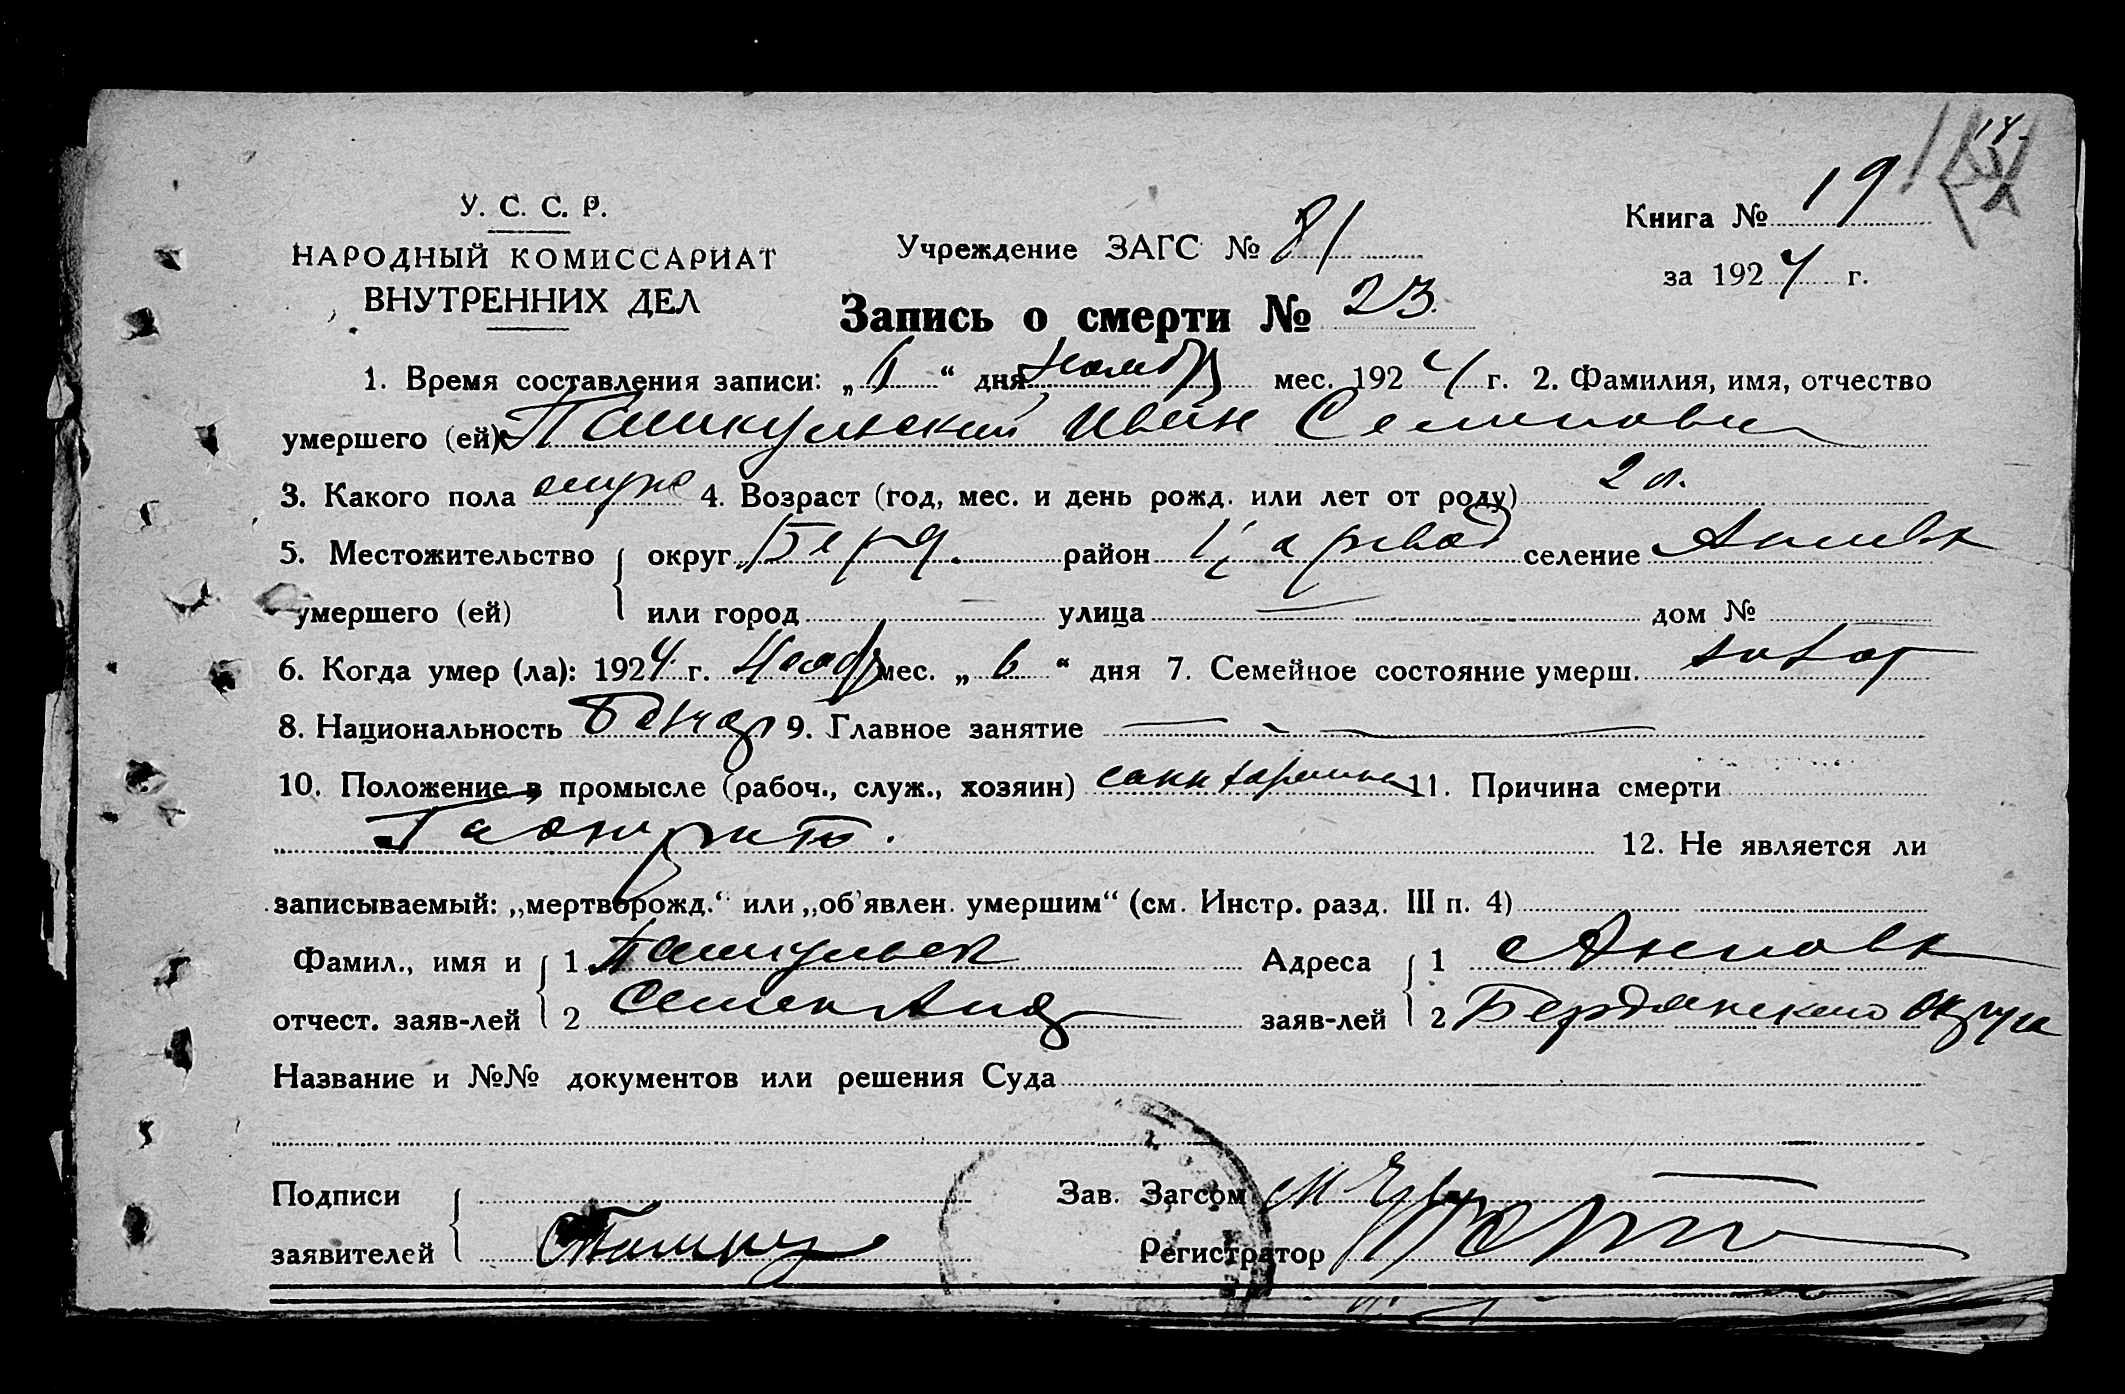 У. С. С. Р.
НАРОДНЫЙ КОМИССАРИАТ
ВНУТРЕННИХ ДЕЛ
Учреждение ЗАГС № 81
Книга № 19
за 1924 г.
Запись о смерти № 23.
1. Время составления записи: „6“ дня Ноябр мес. 1924 г. 2. Фамилия, имя, отчество
умершего (ей) Пашкульский Иван Семенович
3. Какого пола муже 4. Возраст (год, мес. и день рожд. или лет от роду) 2 л.
5. Местожительство округ Берд. район Царевод селение
умершего (ей) или город — улица — дом № —
6. Когда умер (ла): 1924 г. Ноябр мес. „6“ дня 7. Семейное состояние умерш.
8. Национальность Болгар 9. Главное занятие —
10. Положение в промысле (рабоч., служ., хозяин) 11. Причина смерти
12. Не является ли
записываемый: „мертворожд.“ или „об'явлен. умершим“ (см. Инстр. разд. III п. 4)
Фамил., имя и 1 Пашкульск Адреса 1
отчест. заяв-лей 2 Семен Анд заяв-лей 2 Бердянского округа
Название и №№ документов или решения Суда
Подписи Зав. Загсом
заявителей Регистратор